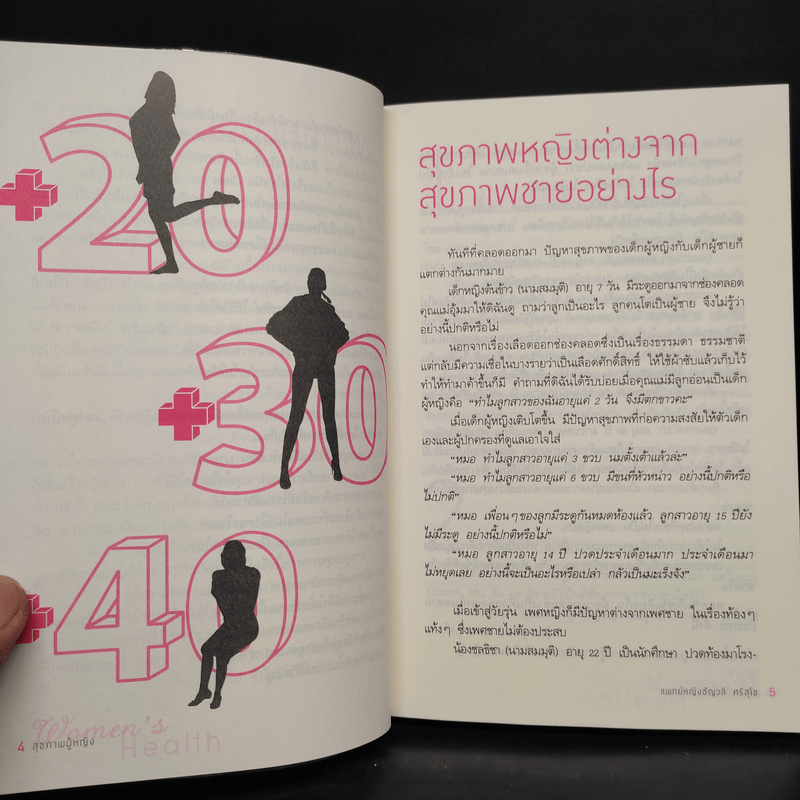 +20
+30
+40
Women's
Health
4 สุขภาพผู้หญิง
สุขภาพหญิงต่างจาก
สุขภาพชายอย่างไร
ทันทีที่คลอดออกมา ปัญหาสุขภาพของเด็กผู้หญิงกับเด็กผู้ชายก็
แตกต่างกันมากมาย
เด็กหญิงต้นข้าว (นามสมมุติ) อายุ 7 วัน มีระดูออกมาจากช่องคลอด
คุณแม่อุ้มมาให้ดิฉันดู ถามว่าลูกเป็นอะไร ลูกคนโตเป็นผู้ชาย จึงไม่รู้ว่า
อย่างนี้ปกติหรือไม่
นอกจากเรื่องเลือดออกช่องคลอดซึ่งเป็นเรื่องธรรมดา ธรรมชาติ
แต่กลับมีความเชื่อในบางรายว่าเป็นเลือดศักดิ์สิทธิ์ ให้ใช้ผ้าซับแล้วเก็บไว้
ทำให้ทำมาค้าขึ้นก็มี คำถามที่ดิฉันได้รับบ่อยเมื่อคุณแม่มีลูกอ่อนเป็นเด็ก
ผู้หญิงคือ “ทำไมลูกสาวของฉันอายุแค่ 2 วัน จึงมีตกขาวคะ”
เมื่อเด็กผู้หญิงเติบโตขึ้น มีปัญหาสุขภาพที่ก่อความสงสัยให้ตัวเด็ก
เองและผู้ปกครองที่ดูแลเอาใจใส่
“หมอ ทำไมลูกสาวอายุแค่ 3 ขวบ นมตั้งเต้าแล้วล่ะ”
“หมอ ทำไมลูกสาวอายุแค่ 6 ขวบ มีขนที่หัวหน่าว อย่างนี้ปกติหรือ
ไม่ปกติ”
“หมอ เพื่อนๆของลูกมีระดูกันหมดห้องแล้ว ลูกสาวอายุ 15 ปียัง
ไม่มีระดู อย่างนี้ปกติหรือไม่”
“หมอ ลูกสาวอายุ 14 ปี ปวดประจำเดือนมาก ประจำเดือนมา
ไม่หยุดเลย อย่างนี้จะเป็นอะไรหรือเปล่า กลัวเป็นมะเร็งจัง”
เมื่อเข้าสู่วัยรุ่น เพศหญิงก็มีปัญหาต่างจากเพศชาย ในเรื่องท้องๆ
แท้งๆ ซึ่งเพศชายไม่ต้องประสบ
น้องชลธิชา (นามสมมุติ) อายุ 22 ปี เป็นนักศึกษา ปวดท้องมาโรง-
แพทย์หญิงชัญวลี ศรีสุโข 5